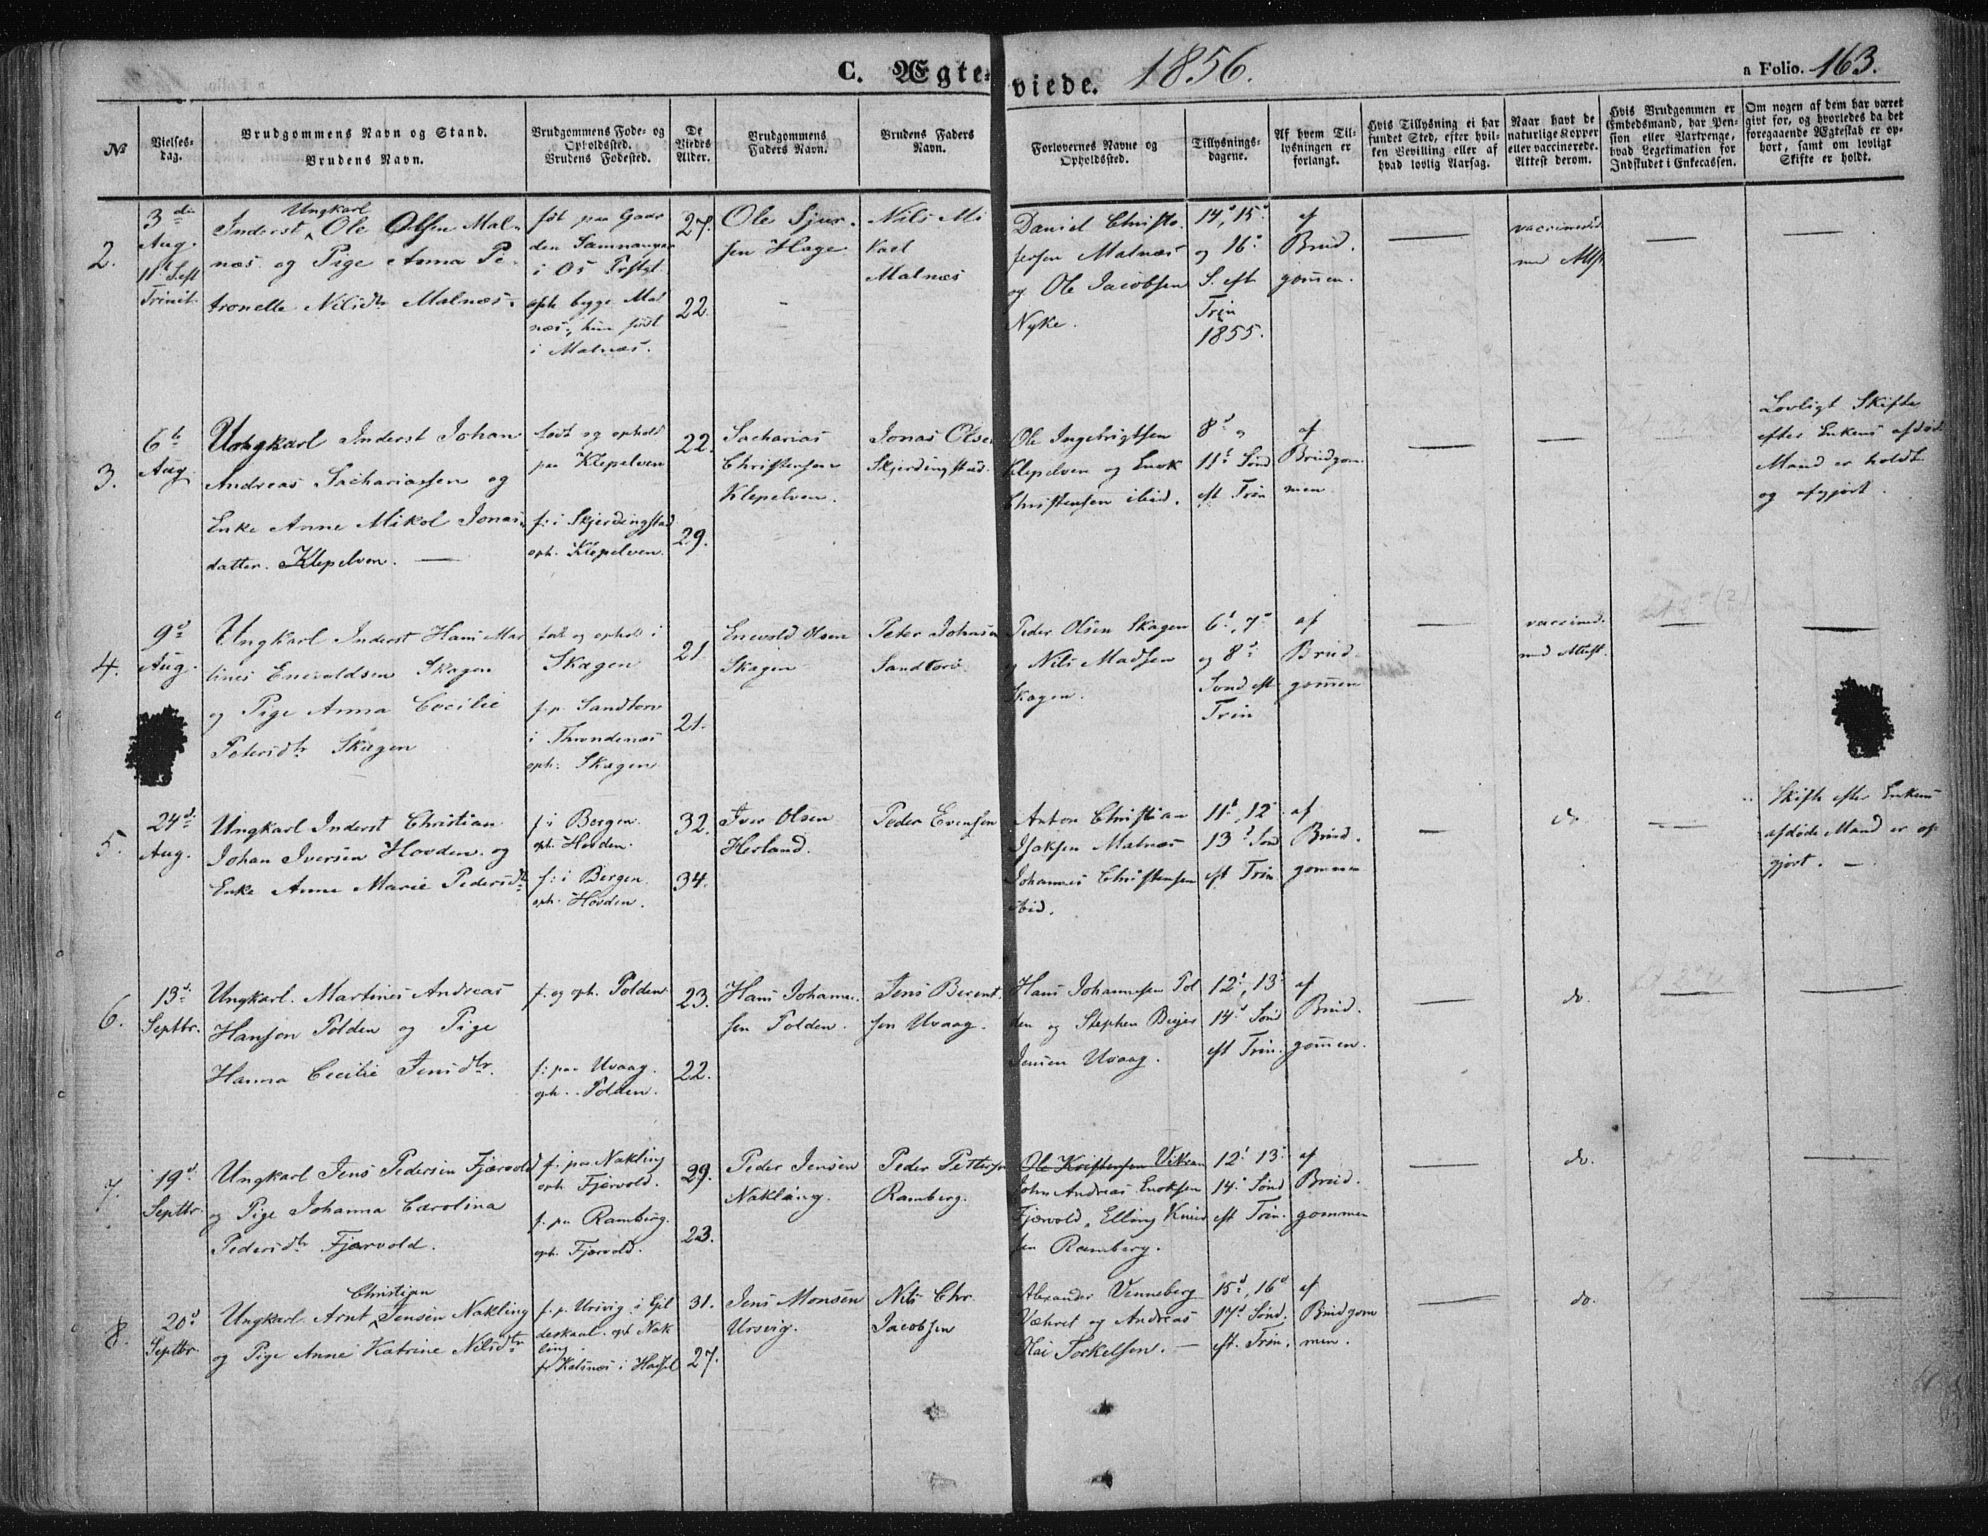 C. Ægteviede. 1856. a Folio. 163.
№
Vielses-
dag.
Brudgommens Navn og Stand.
Brudens Navn.
Brudgommens Føde- og
Opholdssted.
Brudens Fødested.
De
Viedes
Alder.
Brudgommens
Faders Navn.
Brudens Faders
Navn.
Forlovernes Navne og
Opholdssted.
Tillysnings-
dagene.
Af hvem Til-
lysningen er
forlangt.
Hvis Tillysning ei har
fundet Sted, efter hvil-
ken Bevilling eller af
hvad lovlig Aarsag.
Naar havt de
naturlige Kopper
eller vaccinerede.
Attest derom.
Hvis Brudgommen er
Embedsmand, har Pen-
sion eller Vartpenge,
hvad Legetimation for
Indskudet i Enkecassen.
Om nogen af dem har været
givt for, og hvorledes da det
foregaaende Ægteskab er op-
hørt, samt om lovligt
Skifte er holdt.
2.
3die
Aug.
11te S. eft
Trinit.
Ungkarl
Inderst Ole Olsen Mal-
næs og Pige Anna Pe-
tronelle Nilsdtr Malnæs.
født paa Gaar
den Samnanger
i Os Prstgt
oph. begge Mal
næs, hun født
i Malnæs.
27.
22.
Ole Sjur-
sen Hage
Nils Mi
kael
Malnæs
Daniel Christo-
fersen Malnæs
og Ole Jacobsen
Nyke.
14d, 15d
og 16d
S. eft
Trin
1855.
af
Brud-
gommen.
vaccinered
med Attst
3.
6te
Aug.
Ungkarl Inderst Johan
Andreas Sachariassen og
Enke Anne Mikol Jonas-
datter. Klepelven.
født og ophold
paa Klepelven
f: i Skjerdingstad
oph. Klepelven.
22.
29.
Sacharias
Christensen
Klepelven.
Jonas Olsen
Skjerdingstad.
Ole Ingebrigtsen
Klepelven og Enok
Christensen ibid.
8d og
11te Sønd
eft Trin
af
Brudgom-
men.
Lovligt Skifte
efter Enkens afdøde
Mand er holdt
og afgjort.
4.
9d
Aug.
Ungkarl Inderst Hans Mar
tines Enevoldsen Skagen
og Pige Anna Cecilie
Petersdtr Skagen
født og ophold i
Skagen
f. p. Sandtorv
i Throndenæs
oph. Skagen
21.
21.
Enevold Olsen
Skagen
Peter Johnsen
Sandtorv
Peder Olsen Skagen
og Nils Madsen
Skagen.
6d, 7d
og 8d
Sønd eft
Trin
af
Brud-
gommen
vaccined.
med Attest.
5.
24d
Aug.
Ungkarl Inderst Christian
Johan Iversen Hovden og
Enke Anne Marie Pedersdtr
f. i Bergen
oph. Hovden.
f: i Bergen
oph. Hovden.
32.
34.
Iver Olsen
Herland.
Peder Evensen
Anton Christian
Isaksen Malnæs
Johannes Christensen
ibid.
11d, 12
13d Sønd
eft Trin
af
Brud-
gommen
do.
Skifte efter Enkens
afdøde Mand er op
gjort.
6.
13d
Septbr.
Ungkarl. Martines Andreas
Hansen Polden og Pige
Hanna Cecilie Jensdtr.
f. og oph. Polden
f: paa Uvaag.
oph. Polden.
23.
22.
Hans Johanne-
sen Polden.
Jens Berent-
sen Uvaag.
Hans Johannesen Pol
den og Stephen
Jensen Uvaag.
12d, 13d
14d Sønd
eft Trin.
af
Brud-
gommen.
do.
7.
19d
Septbr.
Ungkarl Jens Pedersen Fjærvold
og Pige Johanna Carolina
Pedersdtr Fjærvold.
f. paa Nakling
oph. Fjærvold.
f. pa Ramberg.
oph. Fjærvold.
29.
23.
Peder Jensen
Nakling.
Peder Pettersen
Ramberg.
Ole Kristensen Vikran
John Andreas Enoksen
Fjærvold, Elling Knud
sen Ramberg.
12d 13d
14d Sønd
eft Trin.
af
Brud-
gommen
do.
8.
20d
Septbr.
Christian
Ungkarl Arnt Jensen Nakling
og Pige Anne Katrine Nilsdtr
f. p. Ursvig i Gil
deskaal. oph Nak
ling.
f. Kalsnæs i Hassel
31.
27.
Jens Monsen
Ursvig.
Nils Chr.
Jacobsen
Alexander Venneberg
og Andreas
Kai Torkelsen.
15d, 16d
17d Sønd.
eft. Trin.
af
Brudgom
men.
do.